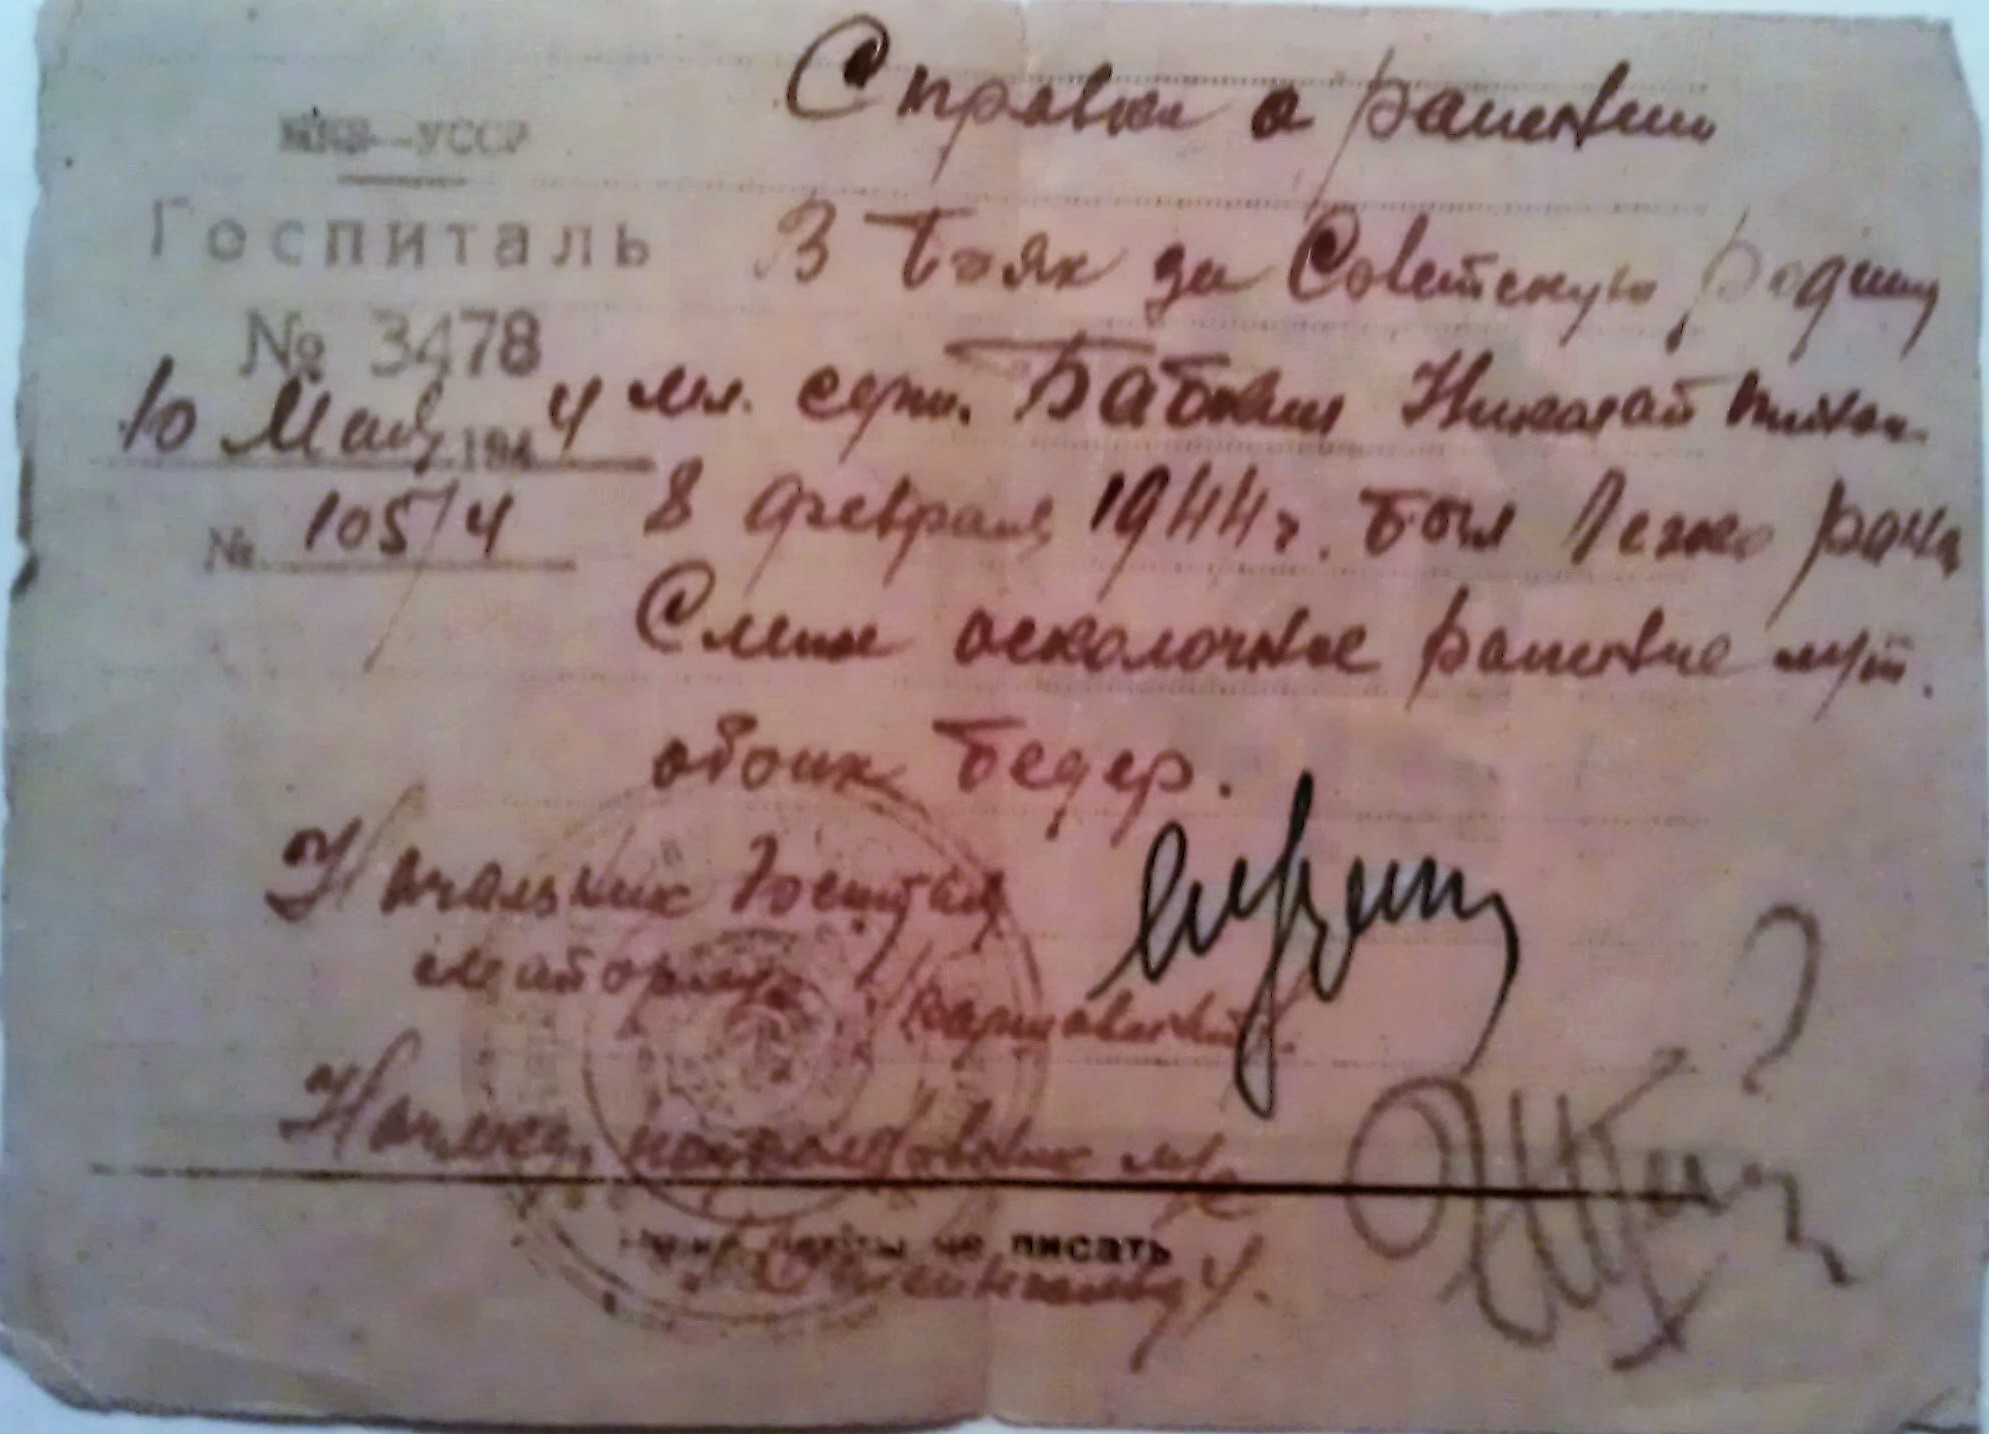 Справка о ранении
УССР
Госпиталь
№ 3478
10 Мая 1944
№ 105/4
В боях за Советскую родину
мл. серж. Бабкин Николай
8 февраля 1944 г. был легко ране
Слепое осколочное ранение мяг.
обоих бедер.
Начальник Госпиталя
майор м/с
Начмед.
м/с
писать